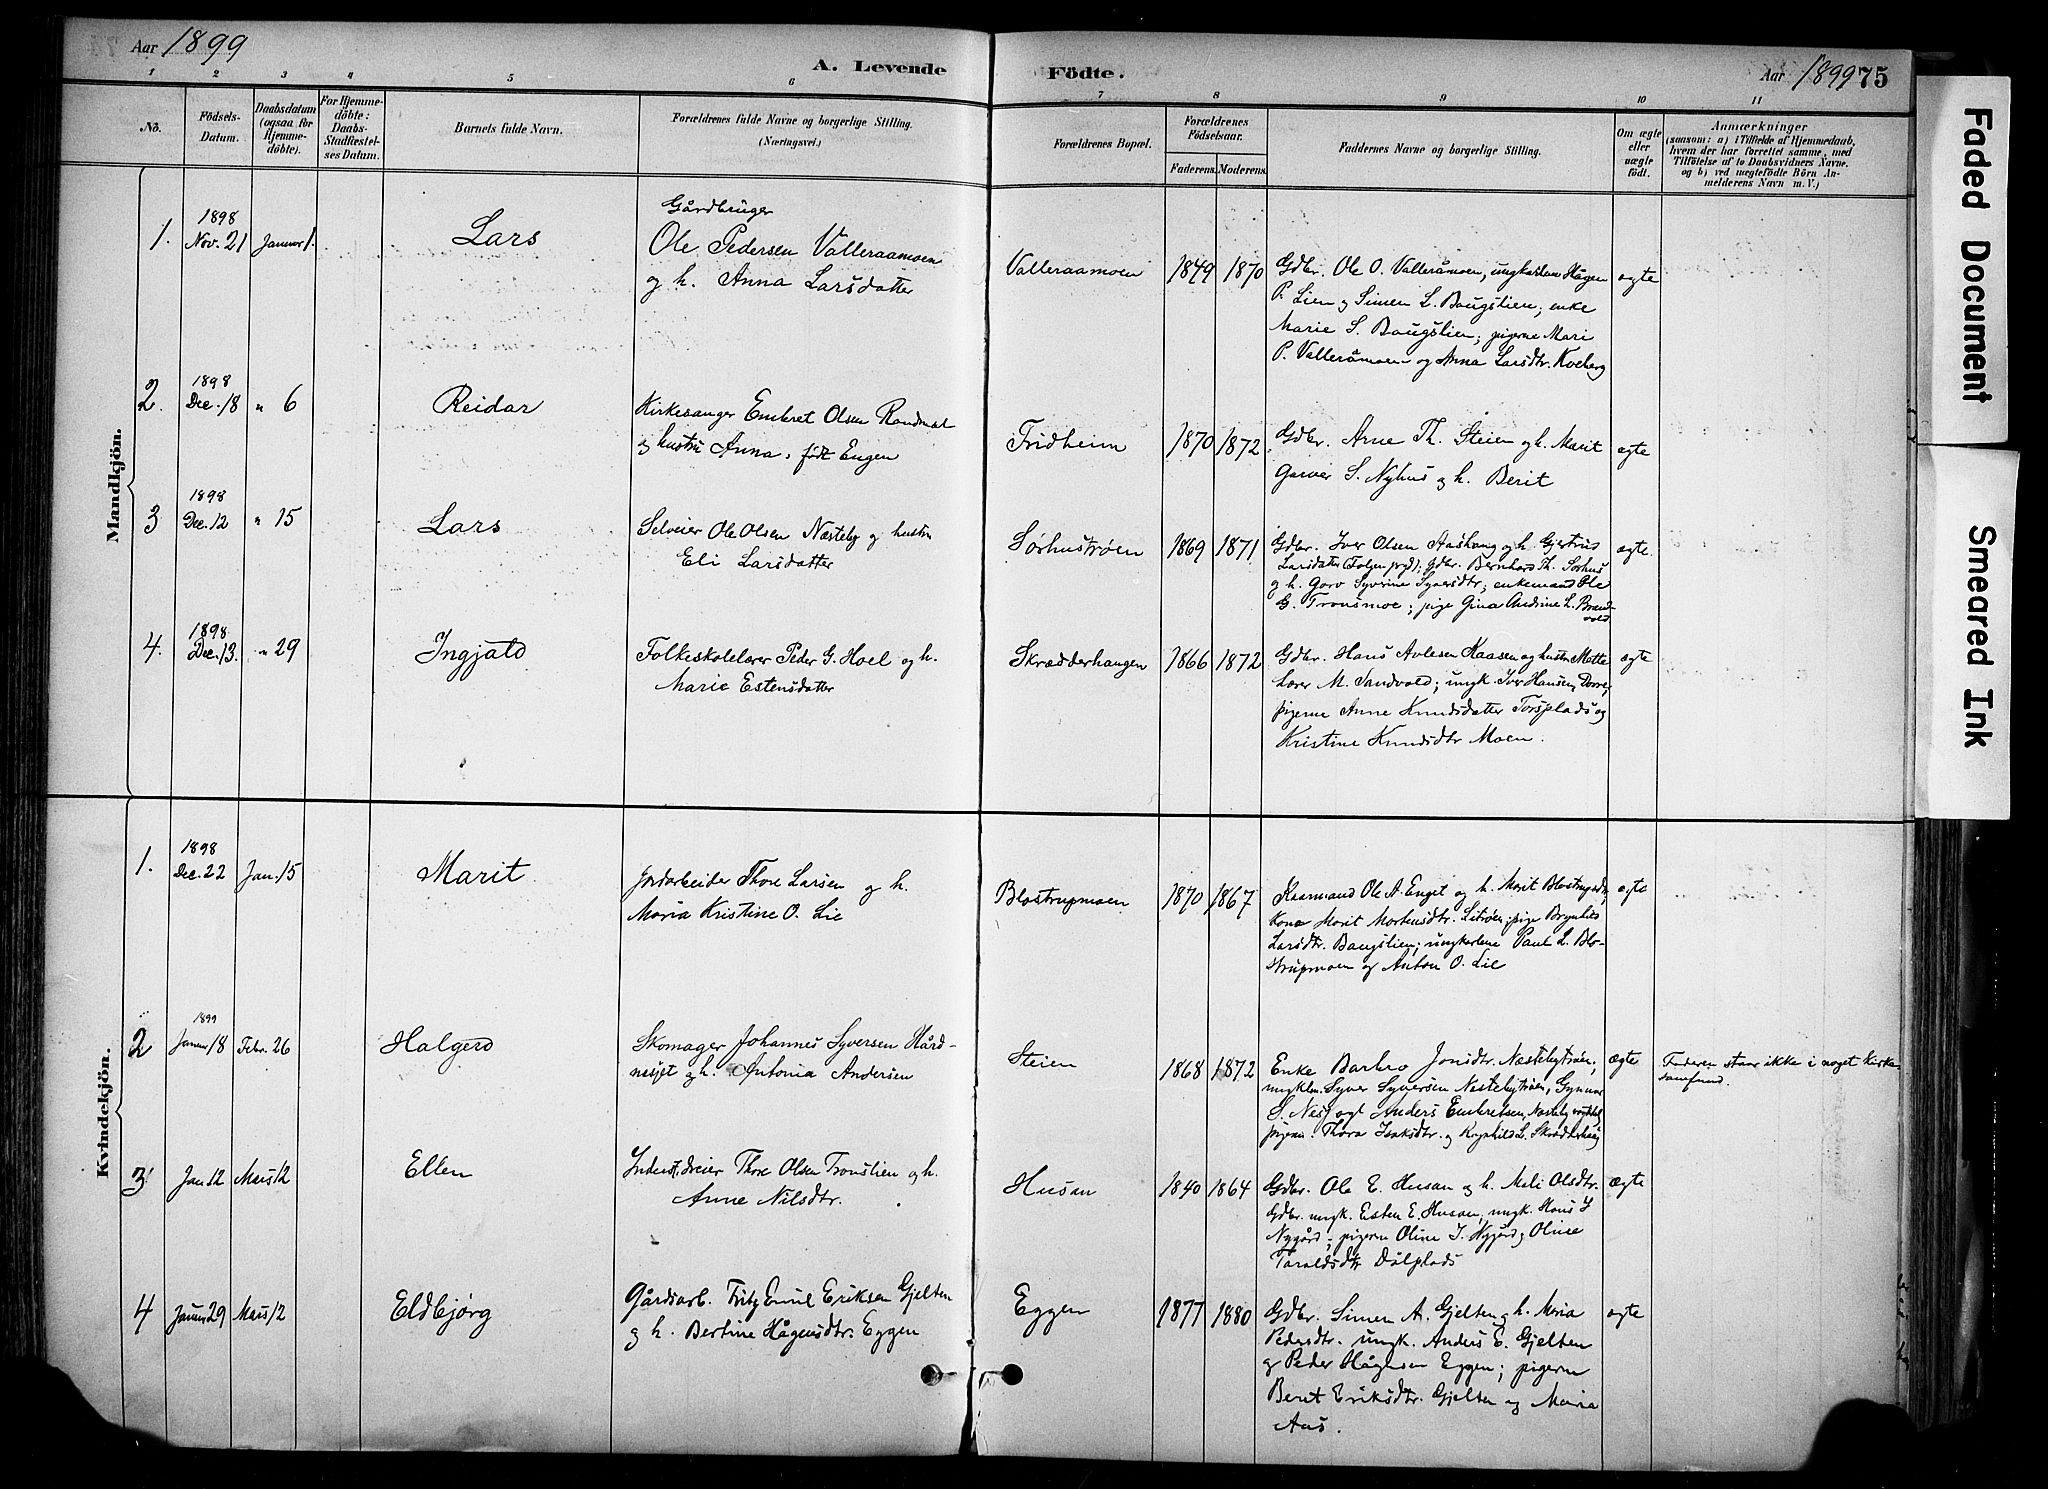 Aar 1899
A. Levende Födte.
Aar 1899 75
1 2 3 4 5 6 7 8 9 10 11
No.
Födsels-Datum.
Daabsdatum (ogsaa for Hjemmedöbte).
For Hjemmedöbte: Daabs-Stadfæstelses Datum.
Barnets fulde Navn.
Forældrenes fulde Navne og borgerlige Stilling.
(Næringsvei.)
Forældrenes Bopæl.
Forældrenes Födselsaar.
Faderens. Moderens.
Faddernes Navne og borgerlige Stilling.
Om ægte eller uægte födt.
Anmærkninger
(saasom: a) i Tilfælde af Hjemmedaab,
hvem der har forrettet samme, med
Tilföielse af to Daabsvidners Navne.
og b) ved uægtefödte Börn An-
melderens Navn m. V.)
Mandkjön.
1. 1898 Nov. 21 Januar 1. Lars
Gårdbruger
Ole Pedersen Valleraamoen
og h. Anna Larsdatter
Valleraamoen 1849 1870
Gdbr. Ole O. Valleråmoen, ungkarlene Hågen
P. Lien og Simen L. Baugslien; enke
Marie S. Baugslien; pigerne Mari
P. Valleråmoen og Anna Larsdtr. Koeberg
ægte
2. 1898 Dec. 18 " 6 Reidar
Kirkesanger Embret Olsen Randmæl
og hustru Anna, født Engen
Fridheim 1870 1872
Gdbr. Arne Th. Steien og h. Marit
Garver S. Nyhus og h. Berit
ægte
3 1898 Dec. 12 " 15 Lars
Selveier Ole Olsen Næsteby og hustru
Eli Larsdatter
Sørhustrøen 1869 1871
Gdbr. Iver Olsen Aashaug og h. Gjertrus
Larsdatter (Tolgen prgd); Gdbr. Bernhard Th. Sørhus
og h. Goro Syverine Syversdtr; enkemand Ole
G. Tronsmoe; pige Gina Andrine L. Brand-
vold
ægte.
4. 1898 Dec. 13. " 29 Ingjald
Folkeskolelærer Peder G. Hoel og h.
Marie Estensdatter
Skrædderhaugen 1866 1872
Gdbr. Hans Avlesen Kaasen og hustru Mette
Lærer M. Sandvold; ungk. Iver Hansen Dorre,
pigerne Anne Knudsdatter Torsplads og
Kristine Knudsdtr Moen.
ægte
Kvindekjön.
1. 1898 Dec. 22 Jan. 15 Marit
Jordarbeider Thore Larsen og h.
Maria Kristine O. Lie
Blostrupmoen 1870 1867
Kaarmand Ole A. Enget og h. Marit
Kone Marit Mortensdtr. pige Brynhild
Larsdtr. Baugslien; ungkarlene Paul L. Blo-
strupmoen og Anton O. Lie
ægte
2 1899 Januar 18 Febr. 26 Halgerd
Skomager Johannes Syversen Hård-
næsjet og h. Antonia Andersen
Steien 1868 1872
Enke Barbro Jonsdtr. Næstebytrøen,
ungklm. Syver Syversen Næstebytrøen, Gunnar
S. Nesj og Anders Embretsen, Næsteby
pigerne: Thora Isaksdtr. og Ragnhild L. Skrædderhaug
ægte
Faderen staar ikke i noget Kirke-
samfund.
3 Jan 12 Mars 12 Ellen
Inderst, dreier Thore Olsen Tronslien og h.
Anne Nilsdtr.
Husan 1840 1864
Gdbr. Ole E. Husan og h. Mali Olsdtr.
Gdbr. ungk. Esten E. Husan, ungk. Hans J
Nygård; pigerne Oline J. Nygård og Oline
Taraldsdtr Dølplads
ægte
4 Januar 29 Mars 12 Eldbjørg
Gårdsarb. Fritz Emil Eriksen Gjelten
og h. Bertine Hågensdtr. Eggen
Eggen 1877 1880
Gdbr. Simen A. Gjelten og h. Maria
Pedersdtr. ungk. Anders E. Gjelten
og Peder Hågensen Eggen; pigerne
Beret Eriksdtr. Gjelten og Maria
Aas.
ægte
Faded Document
Smeared Ink